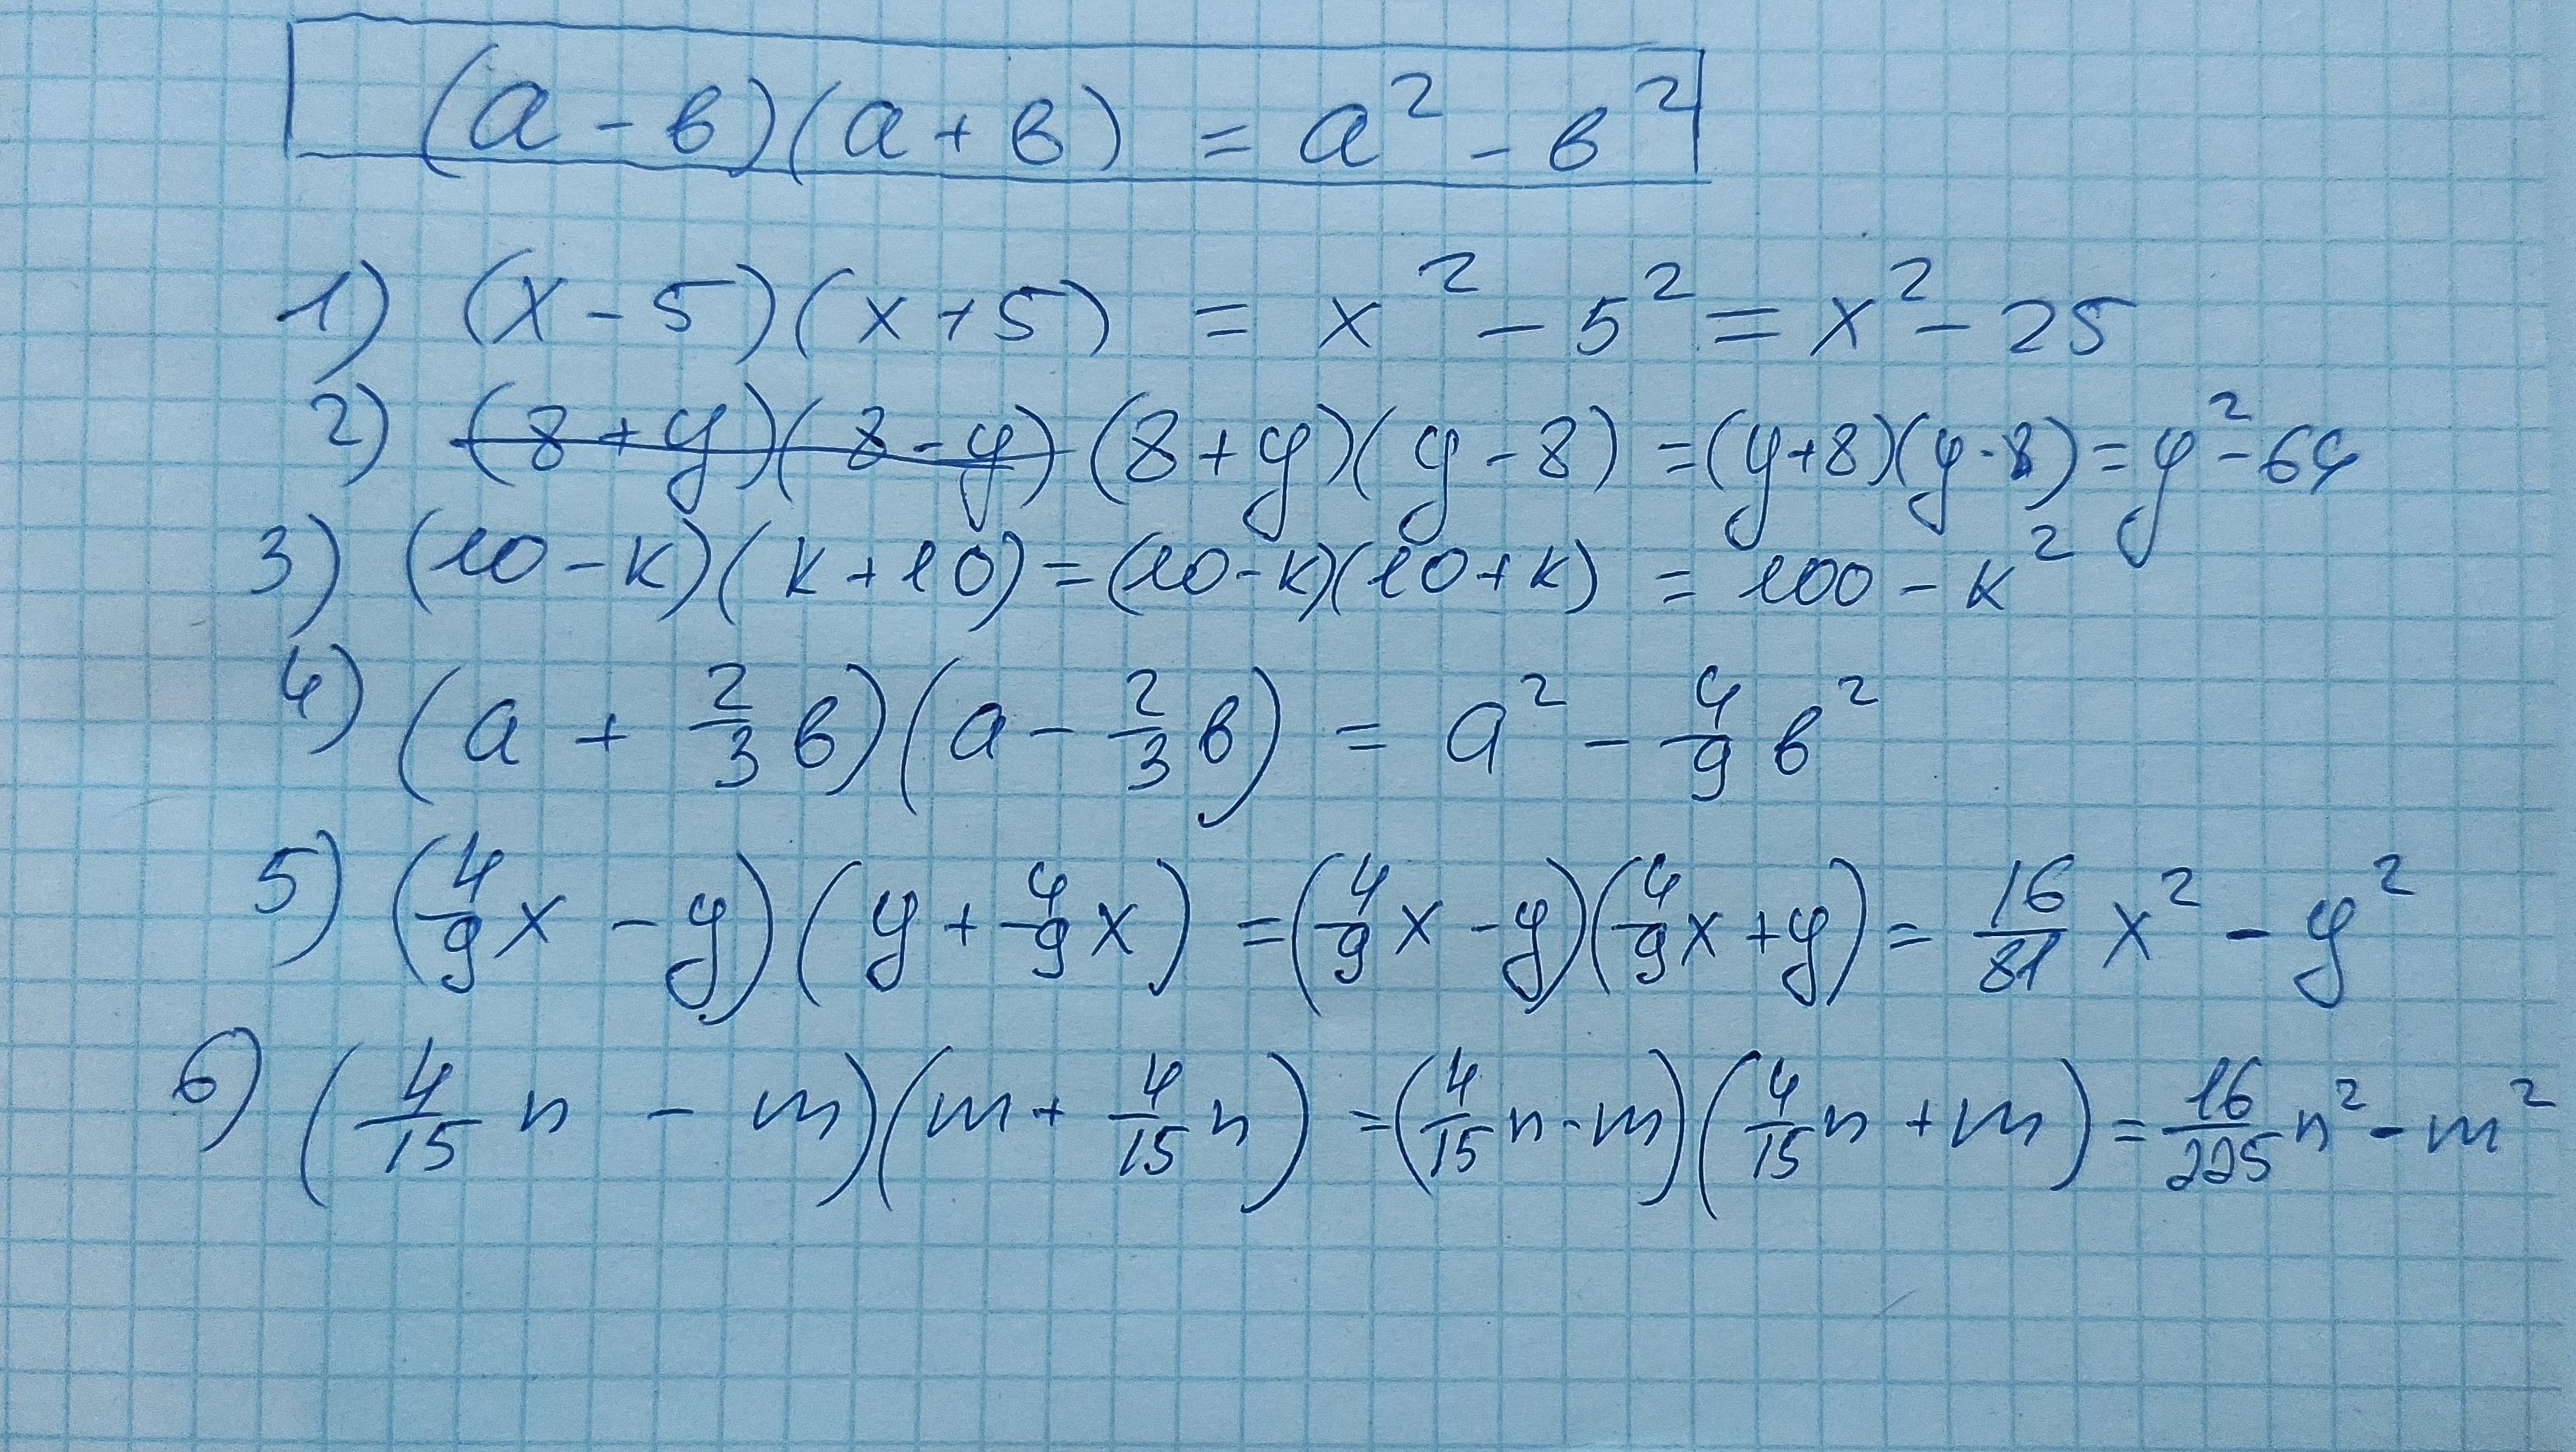 (а - в)(а + в) = а² - в²
1) (x - 5)(x + 5) = x² - 5² = x² - 25
2) (8 + y)(8 - y) (8 + y)(y - 8) = (y + 8)(y - 8) = y² - 64
3) (10 - к)(к + 10) = (10 - к)(10 + к) = 100 - к²
4) (а + 2/3 в)(а - 2/3 в) = а² - 4/9 в²
5) (4/9 x - y)(y + 4/9 x) = (4/9 x - y)(4/9 x + y) = 16/81 x² - y²
6) (4/15 n - m)(m + 4/15 n) = (4/15 n - m)(4/15 n + m) = 16/225 n² - m²